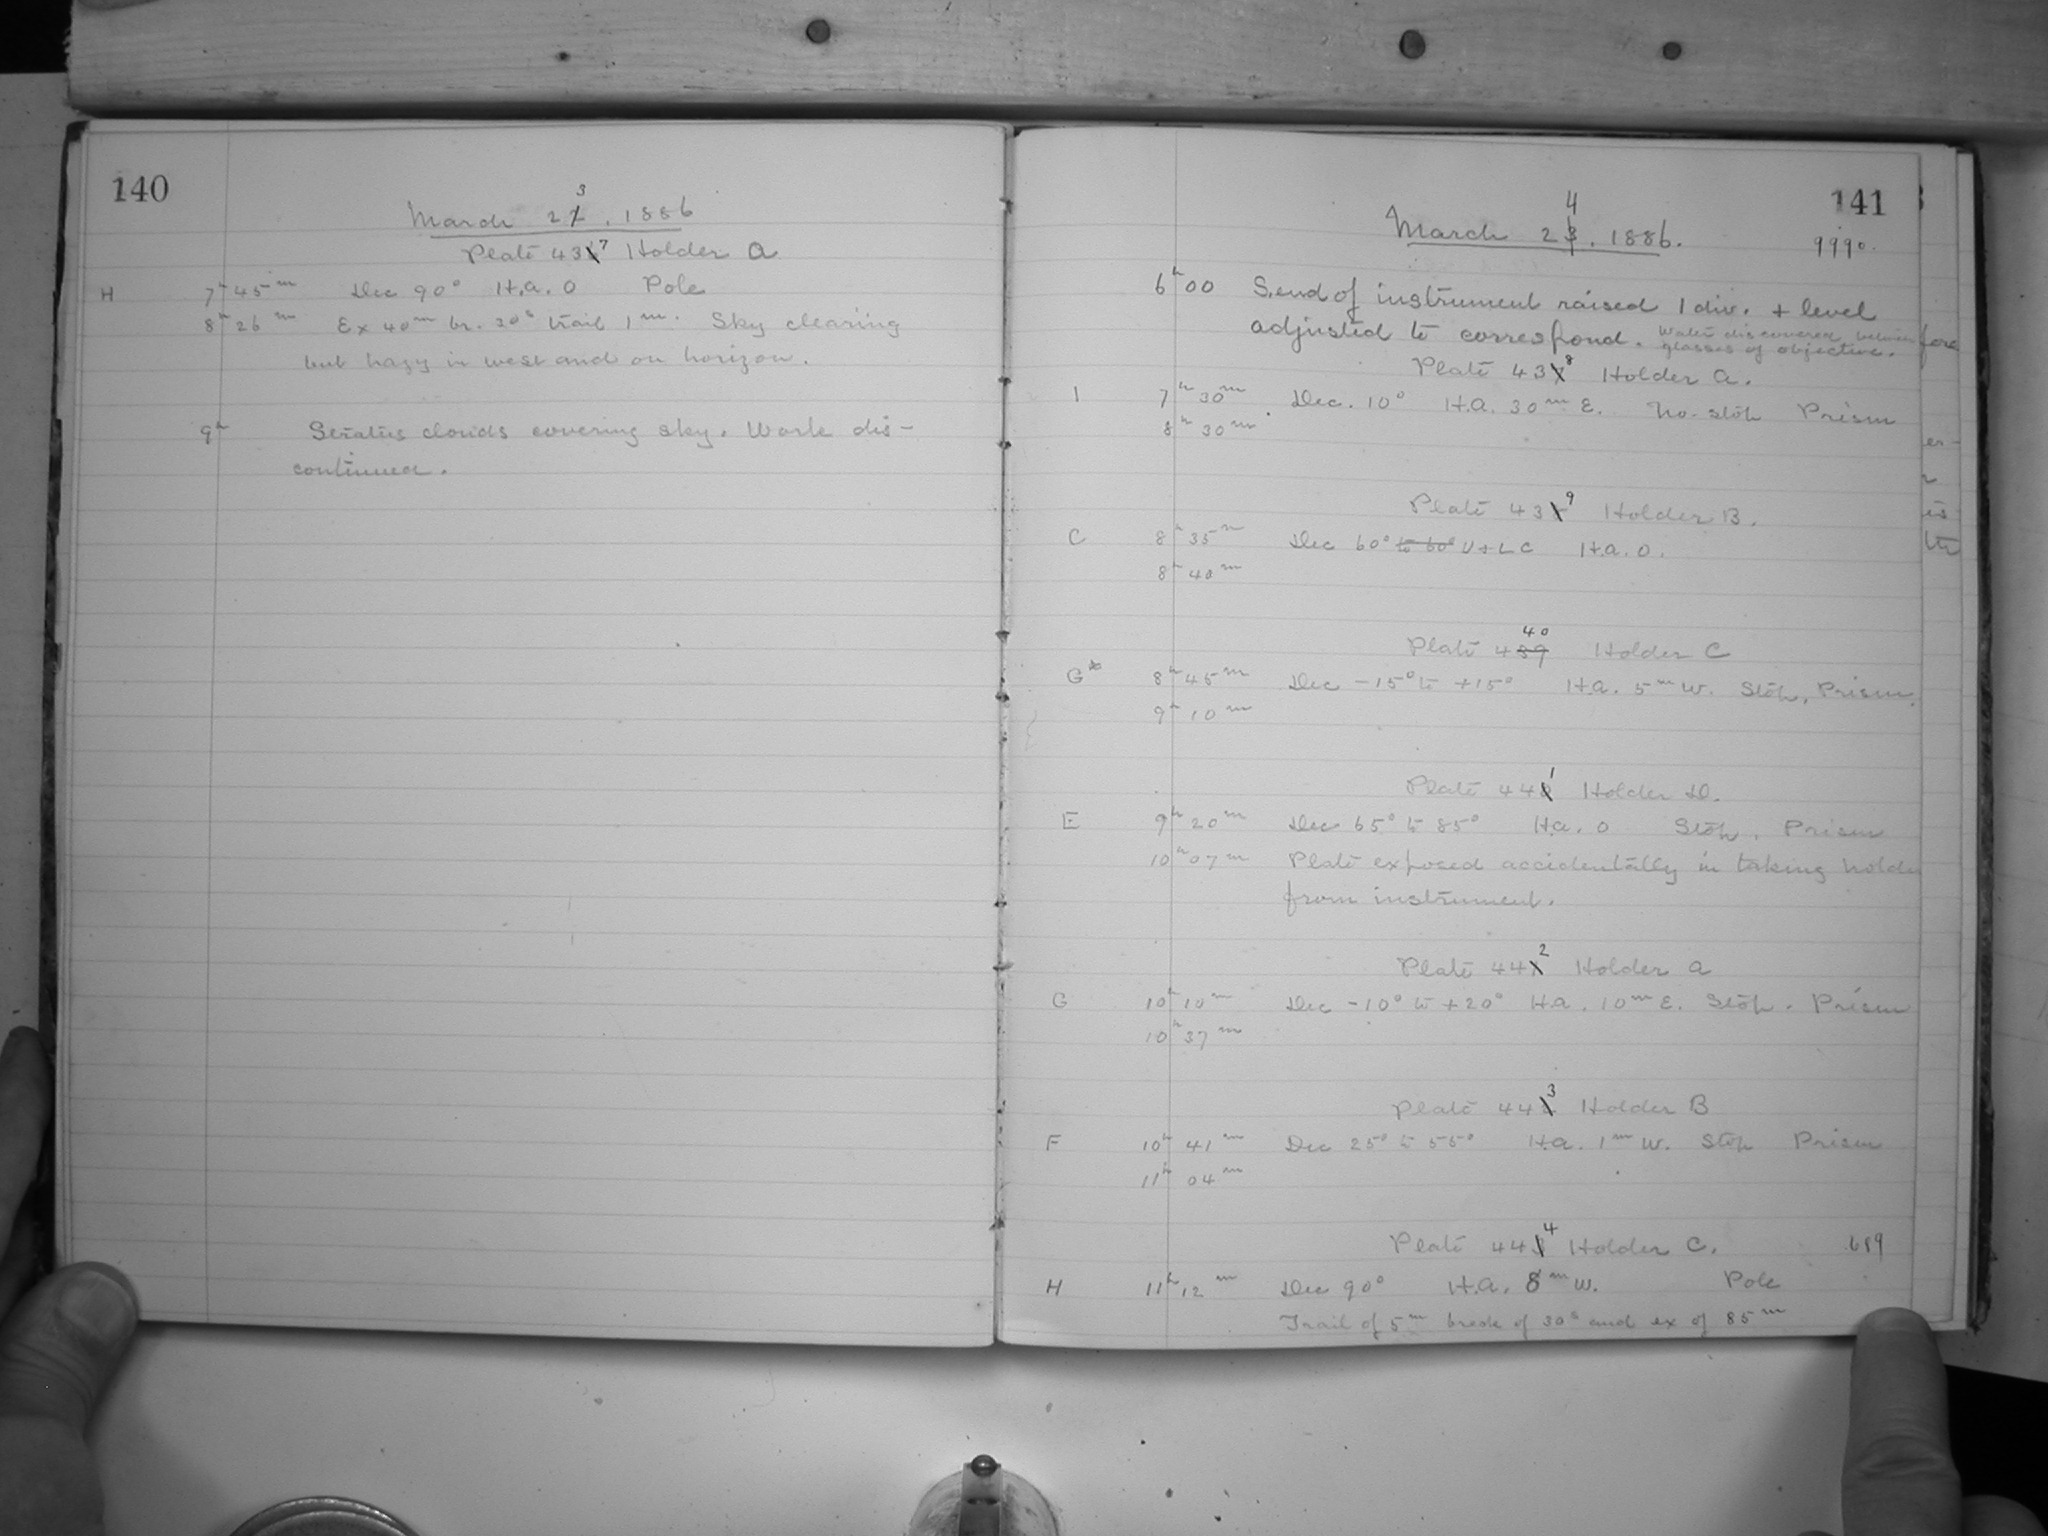 140
March 23, 1886
Plate 437 Holder A
H 7h 45m Dec 90° H.A. 0 Pole
8h 26m Ex 40m br. 30s trail 1m. Sky clearing
but hazy in west and on horizon.
9h Stratus clouds covering sky. Work dis-
continued.
141
March 24, 1886.
9990.
6h 00 S. end of instrument raised 1 div. + level
adjusted to correspond. Water discovered between
glasses of objective.
Plate 438 Holder A.
1 7h 30m Dec. 10° H.A. 30m E. No. stop Prism
8h 30m
Plate 439 Holder B.
C 8h 35m Dec 60° to 60° U + L C H.A. 0.
8h 40m
Plate 440 Holder C
G* 8h 45m Dec -15° to +15° H.A. 5m W. Stop, Prism.
9h 10m
Plate 441 Holder D.
E 9h 20m Dec 65° to 85° H.A. 0 Stop, Prism
10h 07m Plate exposed accidentally in taking holder
from instrument.
Plate 442 Holder A
G 10h 10m Dec -10° to +20° H.A. 10m E. Stop. Prism
10h 37m
Plate 443 Holder B
F 10h 41m Dec 25° to 55° H.A. 1m W. Stop Prism
11h 04m
Plate 444 Holder C. 689
H 11h 12m Dec 90° H.A. 8m W. Pole
Trail of 5m break of 30s and ex of 85m